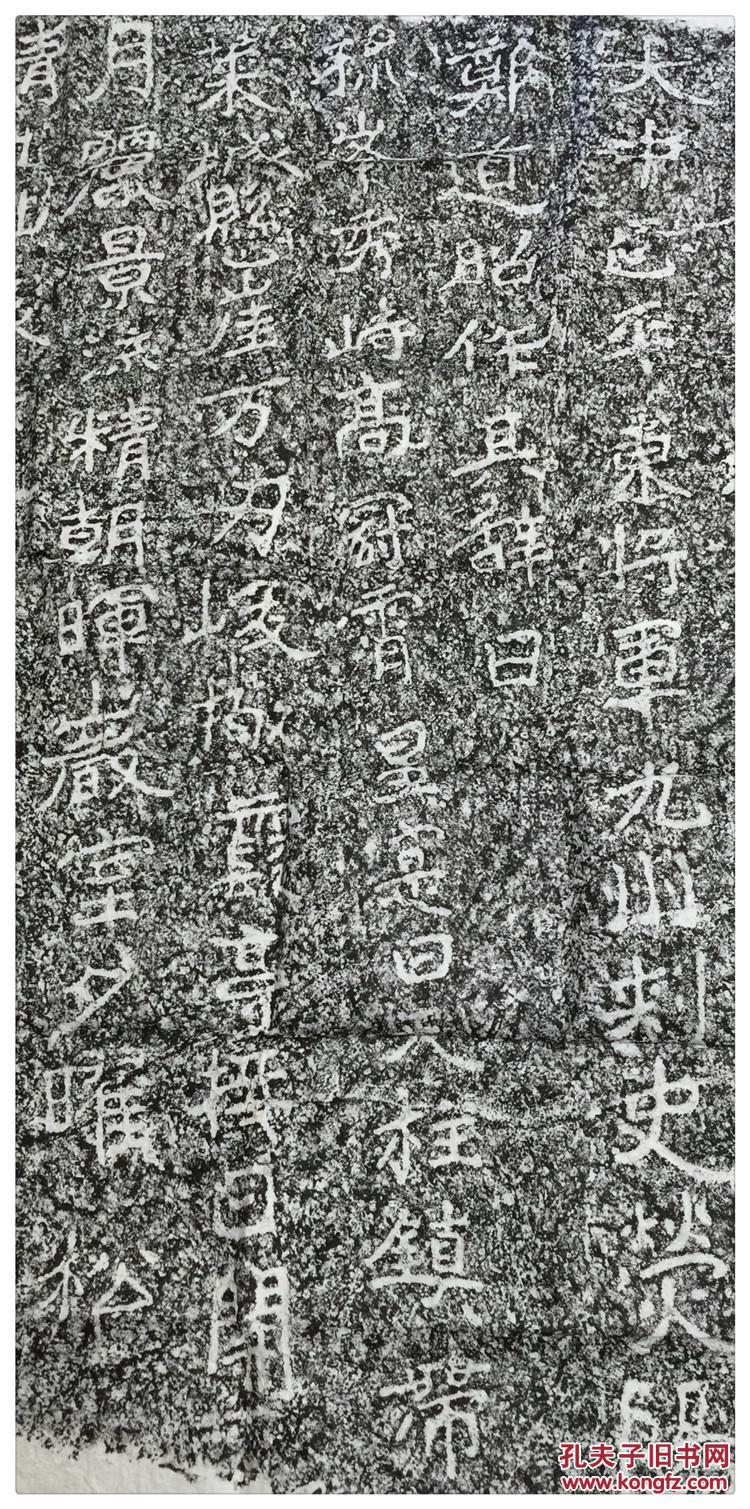 大中正平東將軍光州刺史熒陽
鄭道昭作其辭曰
孤峯秀峙高冠霄星寔曰天柱鎮帶
萊城懸崖万刃峻極霞亭接日開
月麗景流精朝暉巖室夕曜松
清九仙
孔夫子旧书网
www.kongfz.com